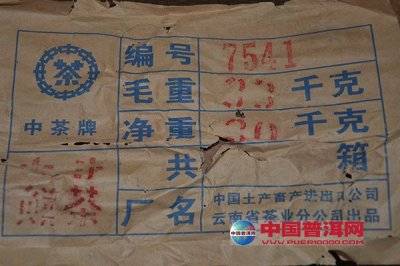 编号 7541
毛重 33 千克
中茶牌 净重 30 千克
共 箱
茶
厂名 中国土产畜产进出口公司
云南省茶业分公司出品
中国普洱网
WWW.PUER10000.COM